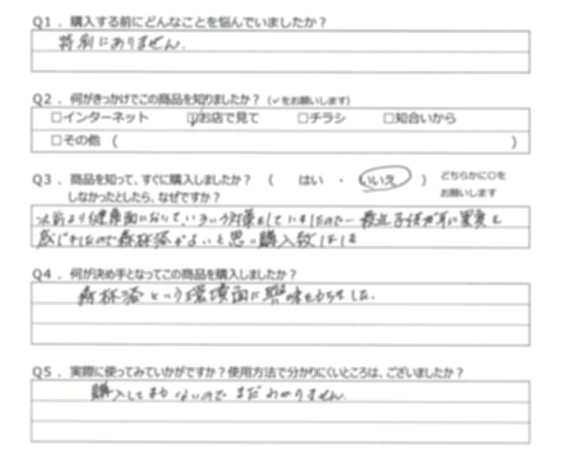 Q1．購入する前にどんなことを悩んでいましたか？
特別にありません.
Q2．何がきっかけでこの商品を知りましたか？（✓をお願いします）
□インターネット ☑お店で見て □チラシ □知合いから
□その他（ ）
Q3．商品を知って、すぐに購入しましたか？（ はい ・ いいえ ） どちらかに〇を
しなかったとしたら、なぜですか？ お願いします
以前より健康面において、いろいろ対策をしていましたので
感じましたので 森林浴がよいと思い購入致しました
Q4．何が決め手となってこの商品を購入しましたか？
森林浴という環境面に興味をもちました.
Q5．実際に使ってみていかがですか？使用方法で分かりにくいところは、ございましたか？
購入してまもないので まだわかりません.